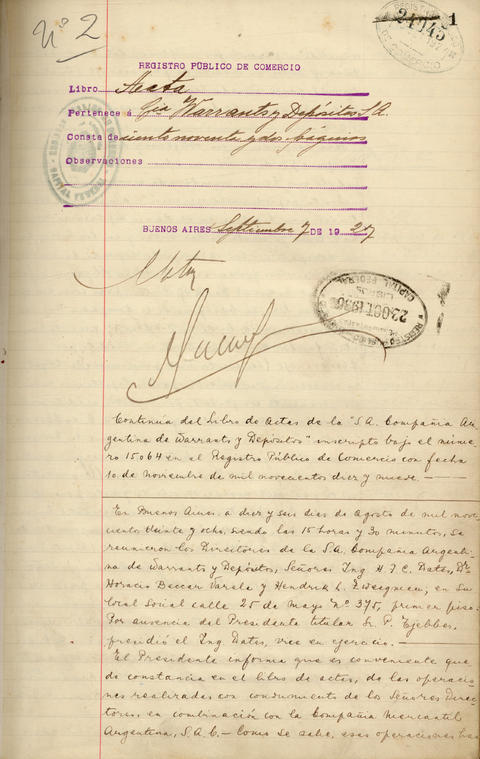 Nº 2
24945
1
REGISTRO PÚBLICO DE COMERCIO
Libro Acata
Pertenece á Cía Warrants y Depósitos S.A.
Consta de ciento noventa y dos páginas
Observaciones
BUENOS AIRES Septiembre 7 DE 1927
CAPITAL FEDERAL
23 OCT 1936
Continúa del Libro de Actas de la "S.A. Compañía Ar-
gentina de Warrants y Depósitos" inscripto bajo el núme-
ro 15064 en el Registro Público de Comercio con fecha
10 de Noviembre de mil novecientos diez y nueve.
En Buenos Aires a diez y seis días de Agosto de mil nove-
ciento veinte y ocho, siendo las 15 horas y 30 minutos, se
reunieron los Directores de la S.A. Compañía Argenti-
na de Warrants y Depósitos, Señores Ing H. F. C. Bates, Dr
Horacio Beccar Varela y Hendrik L. Zwiegman, en su
local Social calle 25 de Mayo Nº 375, primer piso.
Por ausencia del Presidente titular Sr. P. Tjebbes,
presidió el Ing Bates, vice en ejercicio.
El Presidente informa que es conveniente que
de constancia en el libro de actas, de las operacio-
nes realizadas con conocimiento de los Señores Direc-
tores, en combinación con la Compañía Mercantil
Argentina, S.A.C. - Como se sabe, esas operaciones han